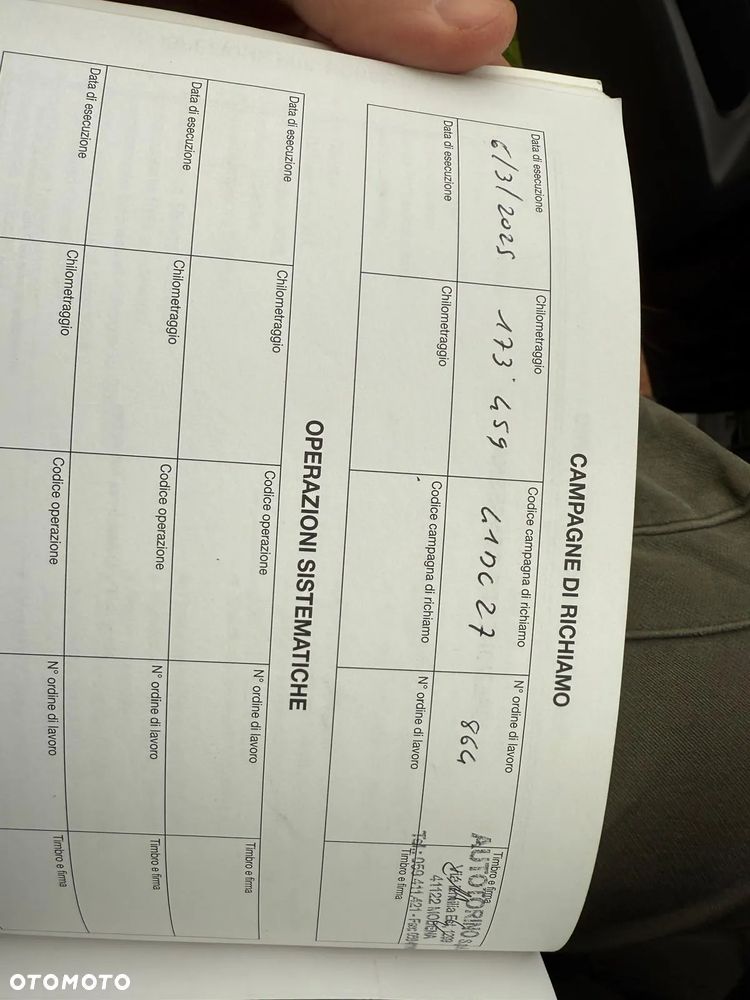 CAMPAGNE DI RICHIAMO
Data di esecuzione Chilometraggio Codice campagna di richiamo N° ordine di lavoro Timbro e firma
6/3/2025 173'459 41DC27 864
AUTOTORINO S.p.A
Via Emilia Est,
41122 MODENA
Tel.: 059 411 421 - Fax:
Data di esecuzione Chilometraggio Codice campagna di richiamo N° ordine di lavoro Timbro e firma
OPERAZIONI SISTEMATICHE
Data di esecuzione Chilometraggio Codice operazione N° ordine di lavoro Timbro e firma
Data di esecuzione Chilometraggio Codice operazione N° ordine di lavoro Timbro e firma
Data di esecuzione Chilometraggio Codice operazione N° ordine di lavoro Timbro e firma
OTOMOTO